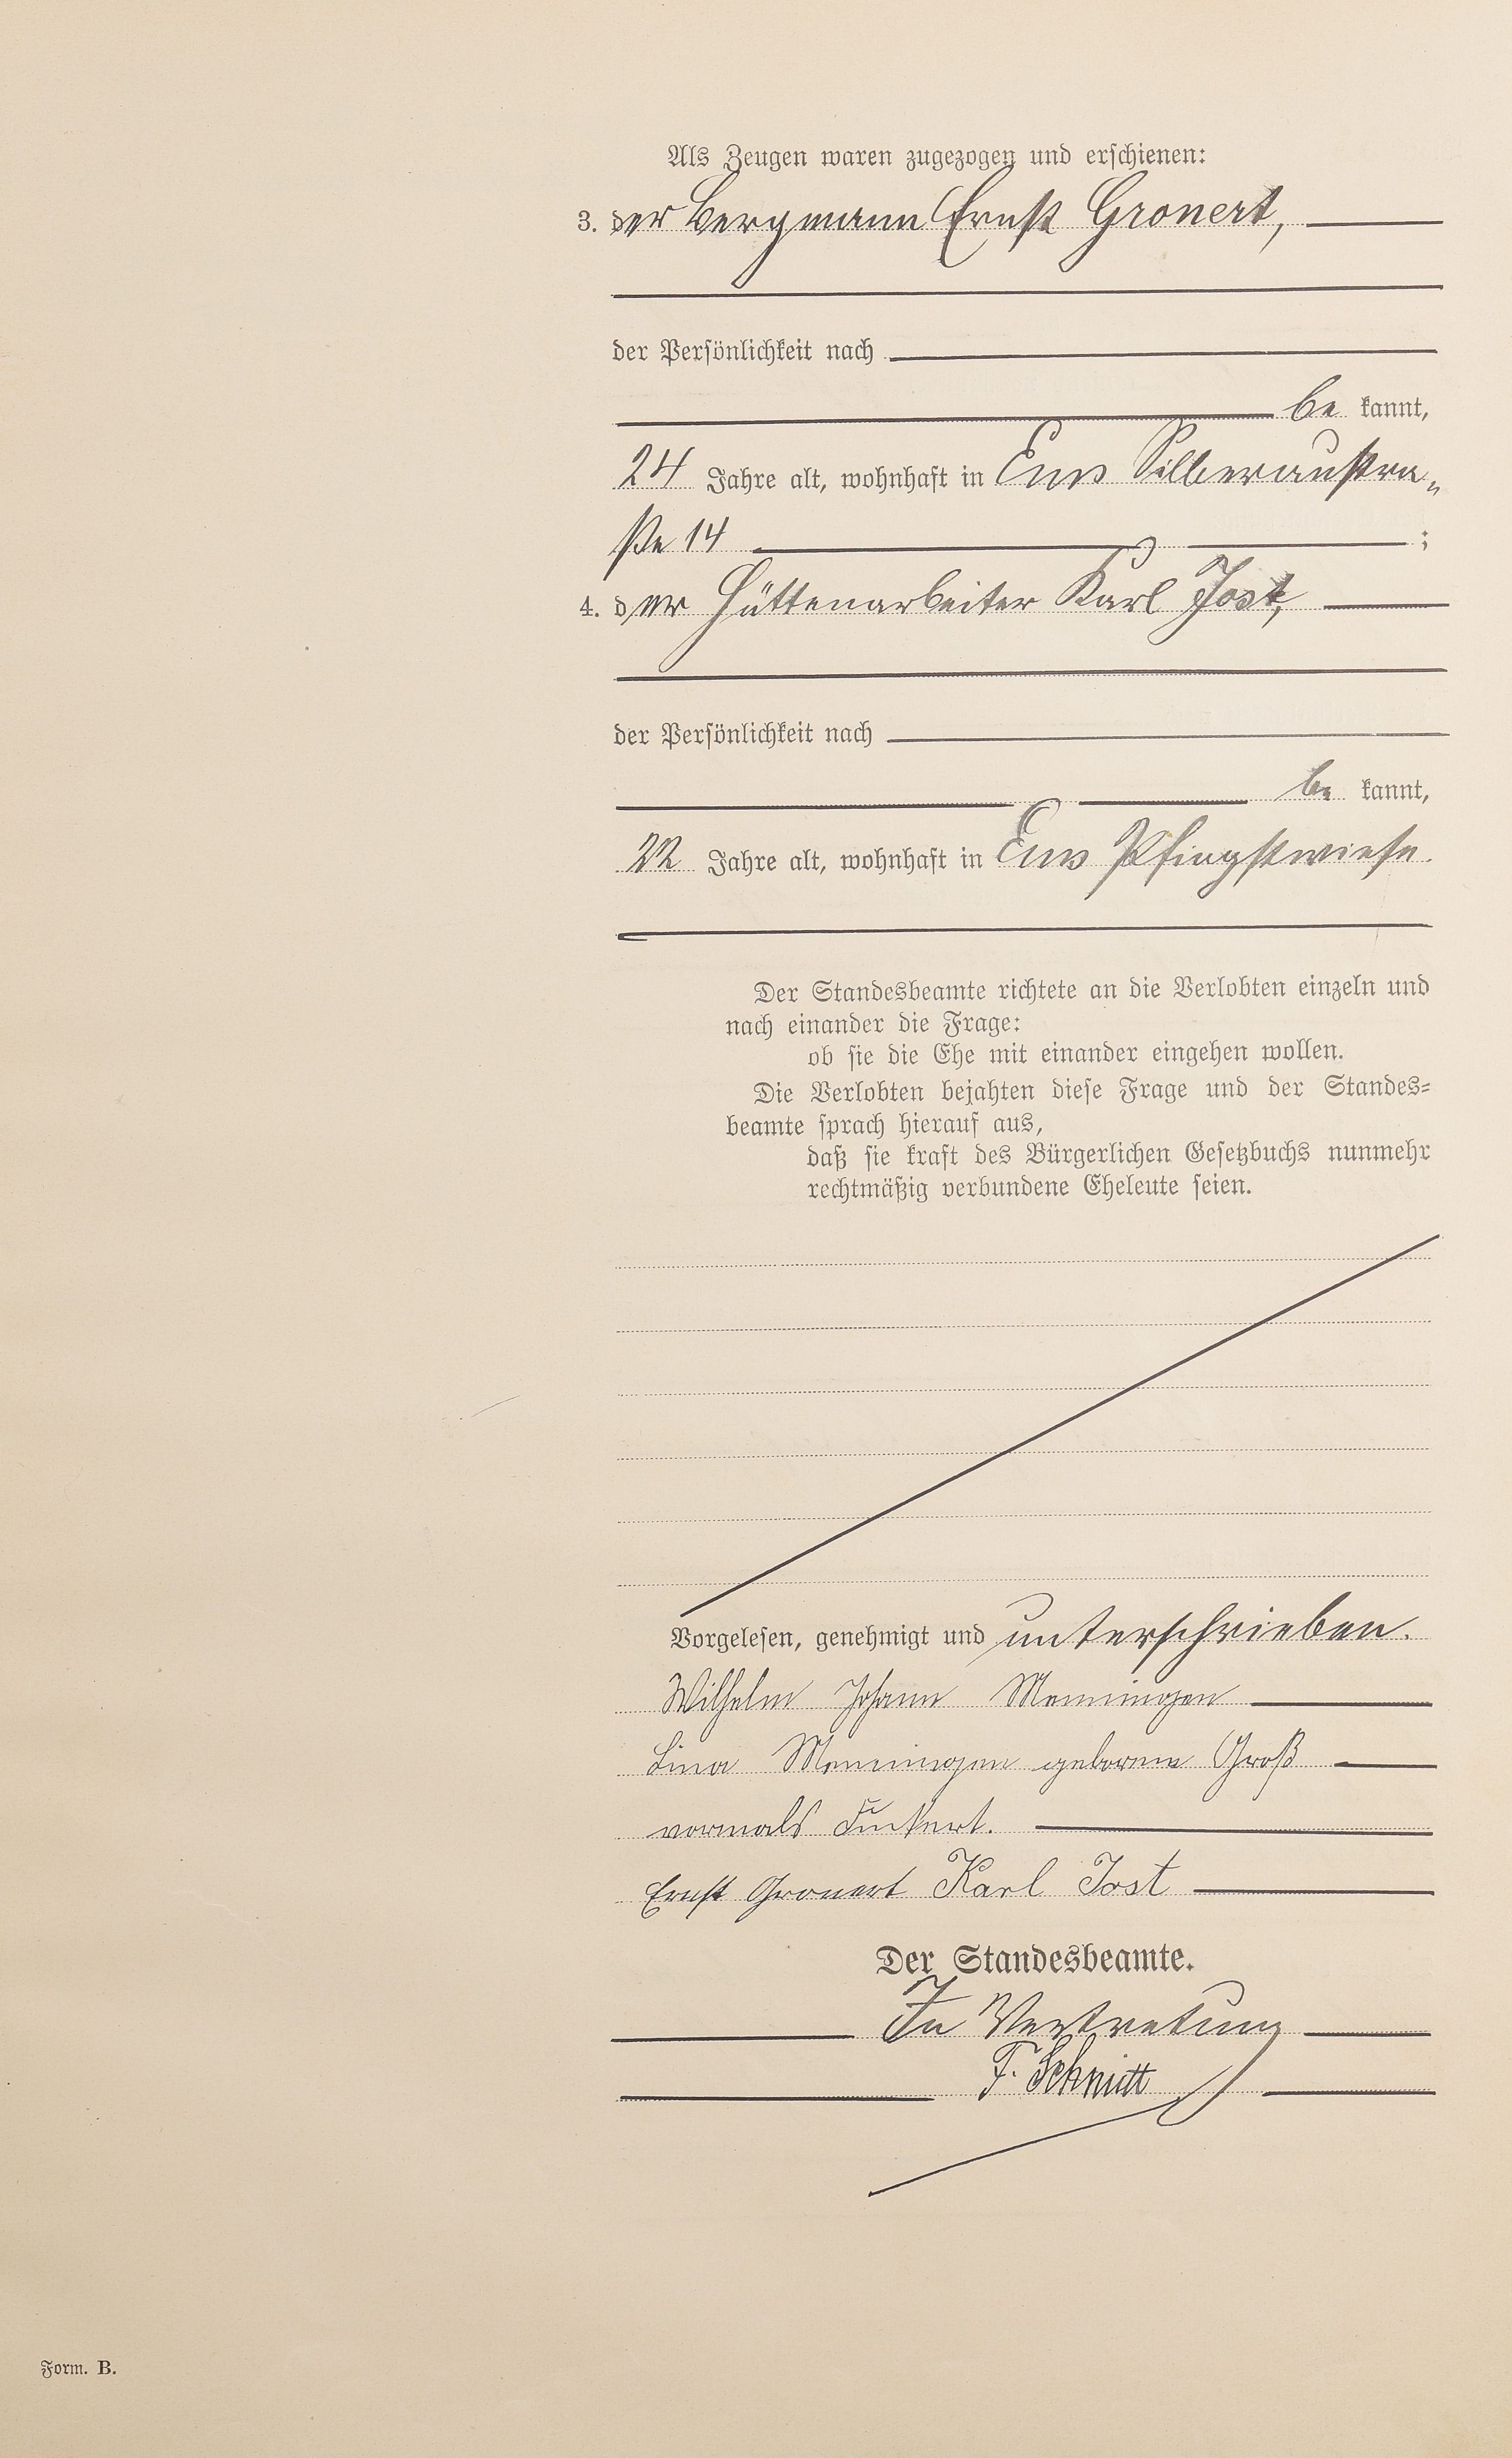 Als Zeugen waren zugezogen und erschienen:
3. der Bergmann Ernst Gronert,
der Persönlichkeit nach
be kannt,
24 Jahre alt, wohnhaft in Ems Silberaustra„
ße 14 ;
4. der Hüttenarbeiter Karl Jost,
der Persönlichkeit nach
be kannt,
22 Jahre alt, wohnhaft in Ems Pfingstwiese.
Der Standesbeamte richtete an die Verlobten einzeln und
nach einander die Frage:
ob sie die Ehe mit einander eingehen wollen.
Die Verlobten bejahten diese Frage und der Standes=
beamte sprach hierauf aus,
daß sie kraft des Bürgerlichen Gesetzbuchs nunmehr
rechtmäßig verbundene Eheleute seien.
Vorgelesen, genehmigt und unterschrieben.
Wilhelm Johann Menningen
Lina Menningen geborene Groß
vormals
Ernst Gronert Karl Jost
Der Standesbeamte.
In Vertretung
F. Schmitt
Form. B.